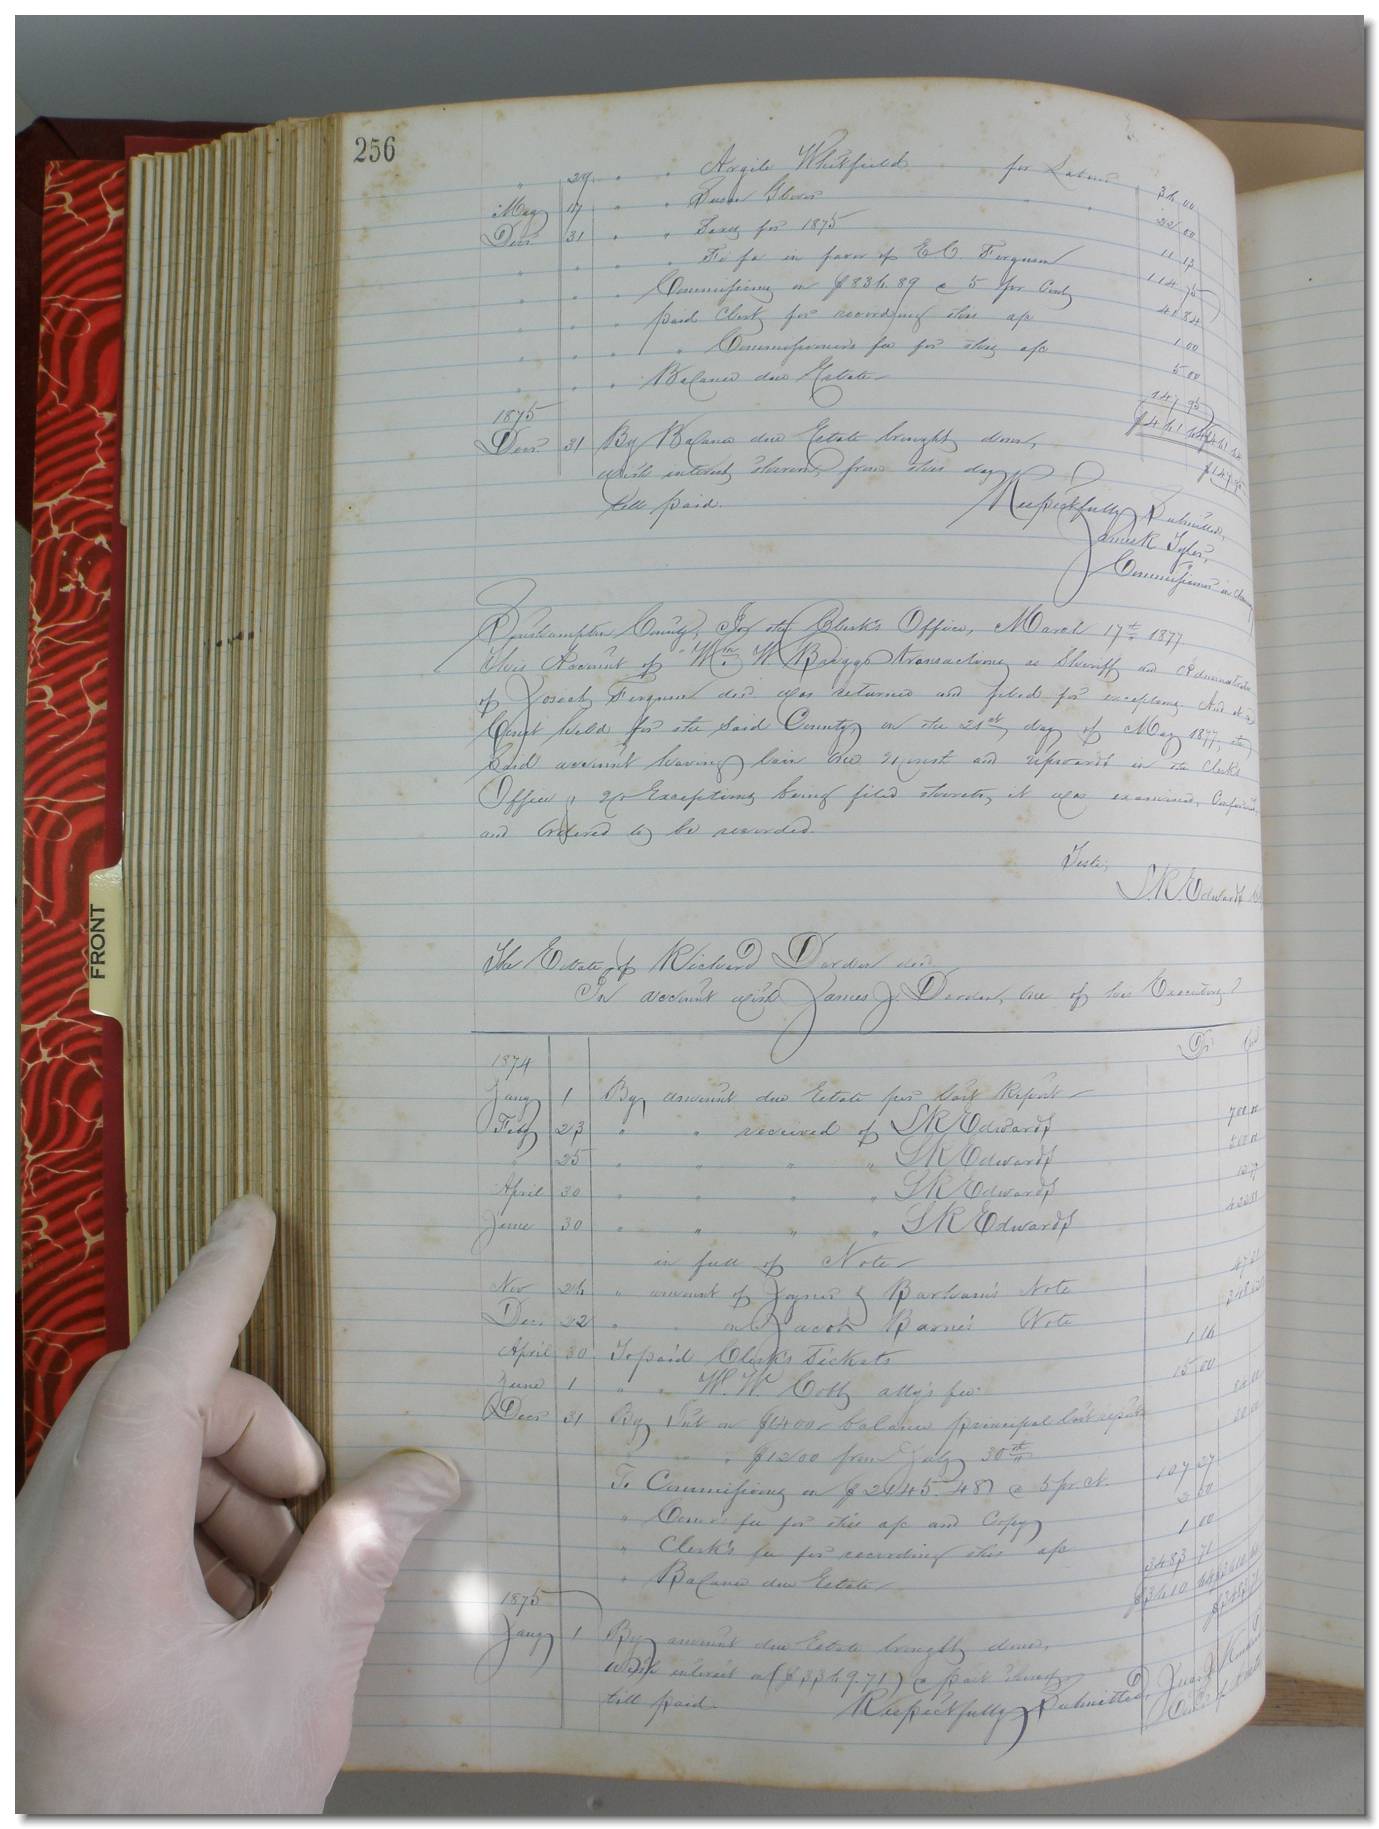 256
" 29 " " Argile Whitfield for Labor 34 00
May 17 " " Susan Glover " " 22 00
Decr 31 " " Taxes for 1875 11 13
" " " " Fi fa in favor of E C Ferguson 114 75
" " " Commissions on $834.89 @ 5 pr Cent 41 84
" " " paid Clerk for recording this a/c 1 00
" " " " Commissioner's fee for this a/c 5 00
" " " Balance due Estate 147 95
1875
Decr 31 By Balance due Estate brought down, $147.95
with interest thereon, from this day
till paid.
Respectfully Submitted,
James R Tyler,
Commissioner in Chancery
Southampton County, In the Clerk's Office, March 17th 1877
This Account of Wm W Briggs transactions as Sheriff and Administrator
of Josiah Ferguson decd was returned and filed for exceptions And at a
Court held for the said County on the 21st day of May 1877, the
said account having lain one month and upwards in the Clerk's
Office, no Exceptions being filed thereto, it was examined, Confirmed,
and Ordered to be recorded.
Teste,
L.R. Edwards
FRONT
The Estate of Richard Darden decd
In account with James J. Darden, one of his Executors
Dr
1874
Jany 1 By amount due Estate per last Report
Feby 23 " " received of L R Edwards
" 25 " " " " L R Edwards
April 30 " " " " L R Edwards
June 30 " " " " L R Edwards
in full of Note
Nov 24 " amount of Joyner & Barham's Note
Decr 22 " " on Jacob Barnes Note
April 30 To paid Clerk's tickets 1 16
June 1 " " W. W. Cobb atty's fee 15 00
Decr 31 By Int on $1400 balance principal last report
" " $1200 from July 30th
To Commissions on $2145 48 @ 5 pr ct. 107 27
" Comr fee for this a/c and Copy 2 50
" Clerk's fee for recording this a/c 1 00
" Balance due Estate 3483 71
1875
Jany 1 By amount due Estate brought down,
with interest on ($3349.71) a part thereof
till paid. Respectfully Submitted,